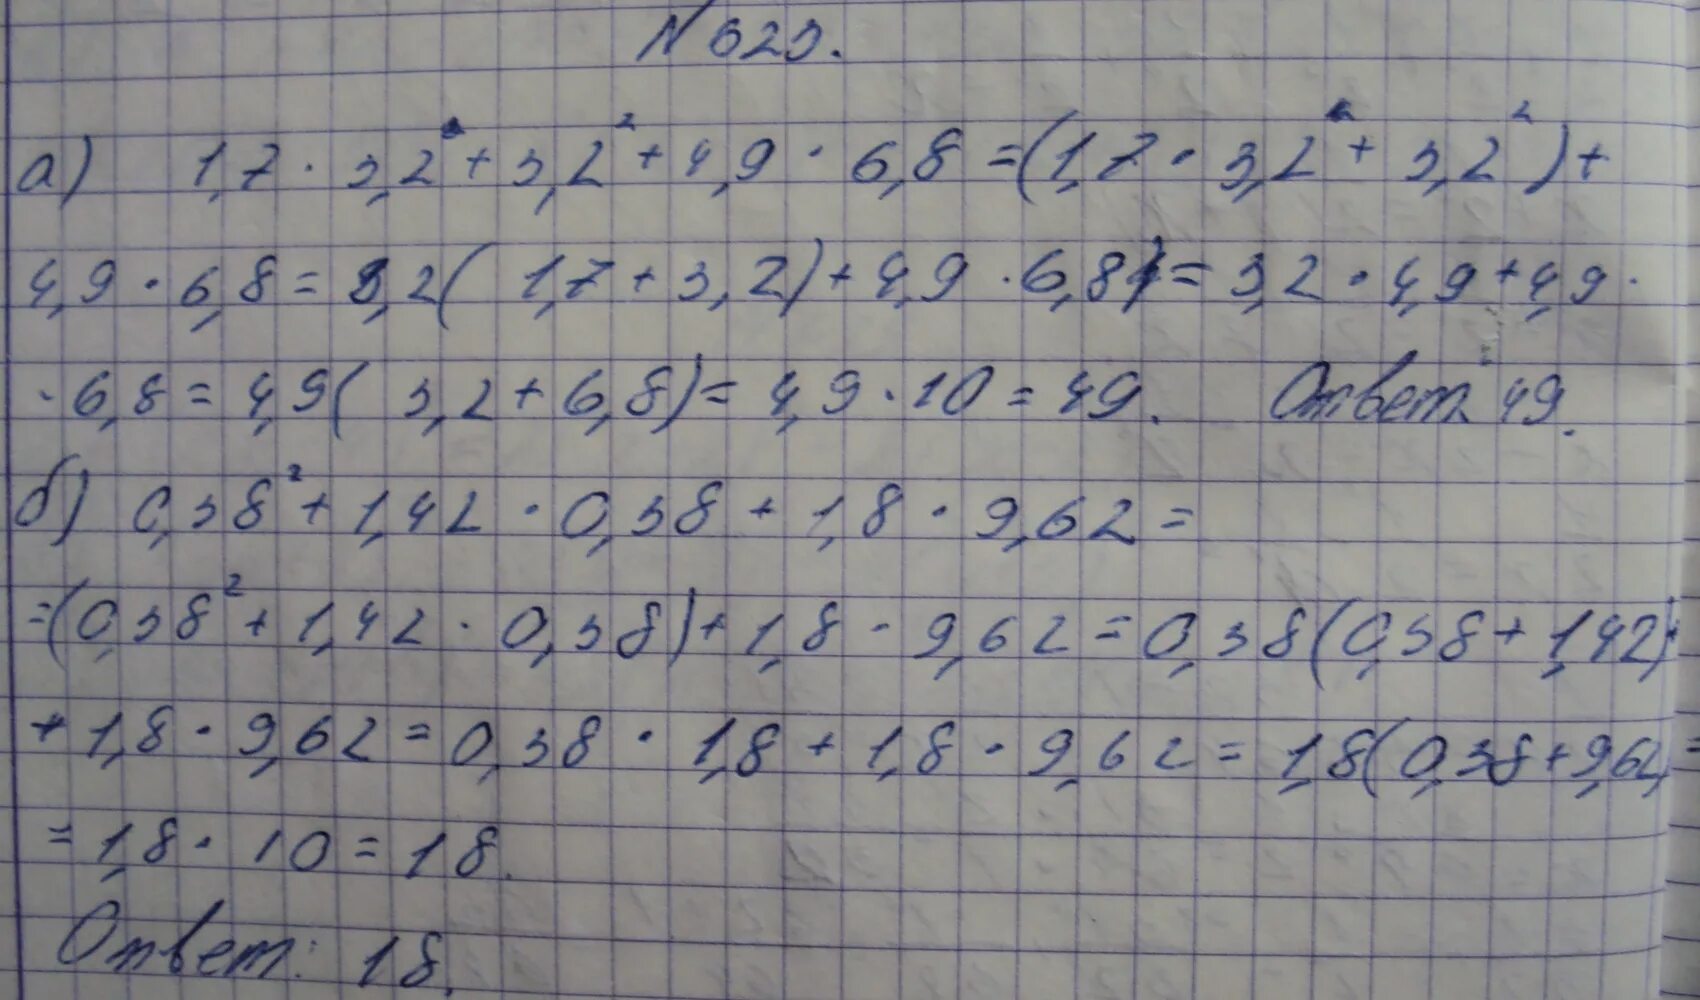 № 623.
а) 1,7 · 3,2 + 3,2² + 4,9 · 6,8 = (1,7 · 3,2 + 3,2²) +
4,9 · 6,8 = 3,2( 1,7 + 3,2) + 4,9 · 6,8 = 3,2 · 4,9 + 4,9 ·
· 6,8 = 4,9( 3,2 + 6,8) = 4,9 · 10 = 49. Ответ 49.
б) 0,38² + 1,42 · 0,38 + 1,8 · 9,62 =
= (0,38² + 1,42 · 0,38) + 1,8 · 9,62 = 0,38(0,38 + 1,42)+
+ 1,8 · 9,62 = 0,38 · 1,8 + 1,8 · 9,62 = 1,8(0,38 + 9,62) =
= 1,8 · 10 = 18.
Ответ: 18.